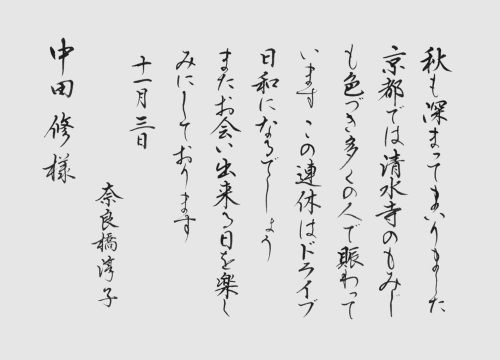 秋も深まってまいりました
京都では清水寺のもみじ
も色づき多くの人で賑わって
います この連休はドライブ
日和になるでしょう
またお会い出来る日を楽し
みにしております
十一月三日
奈良橋 子
中田修様